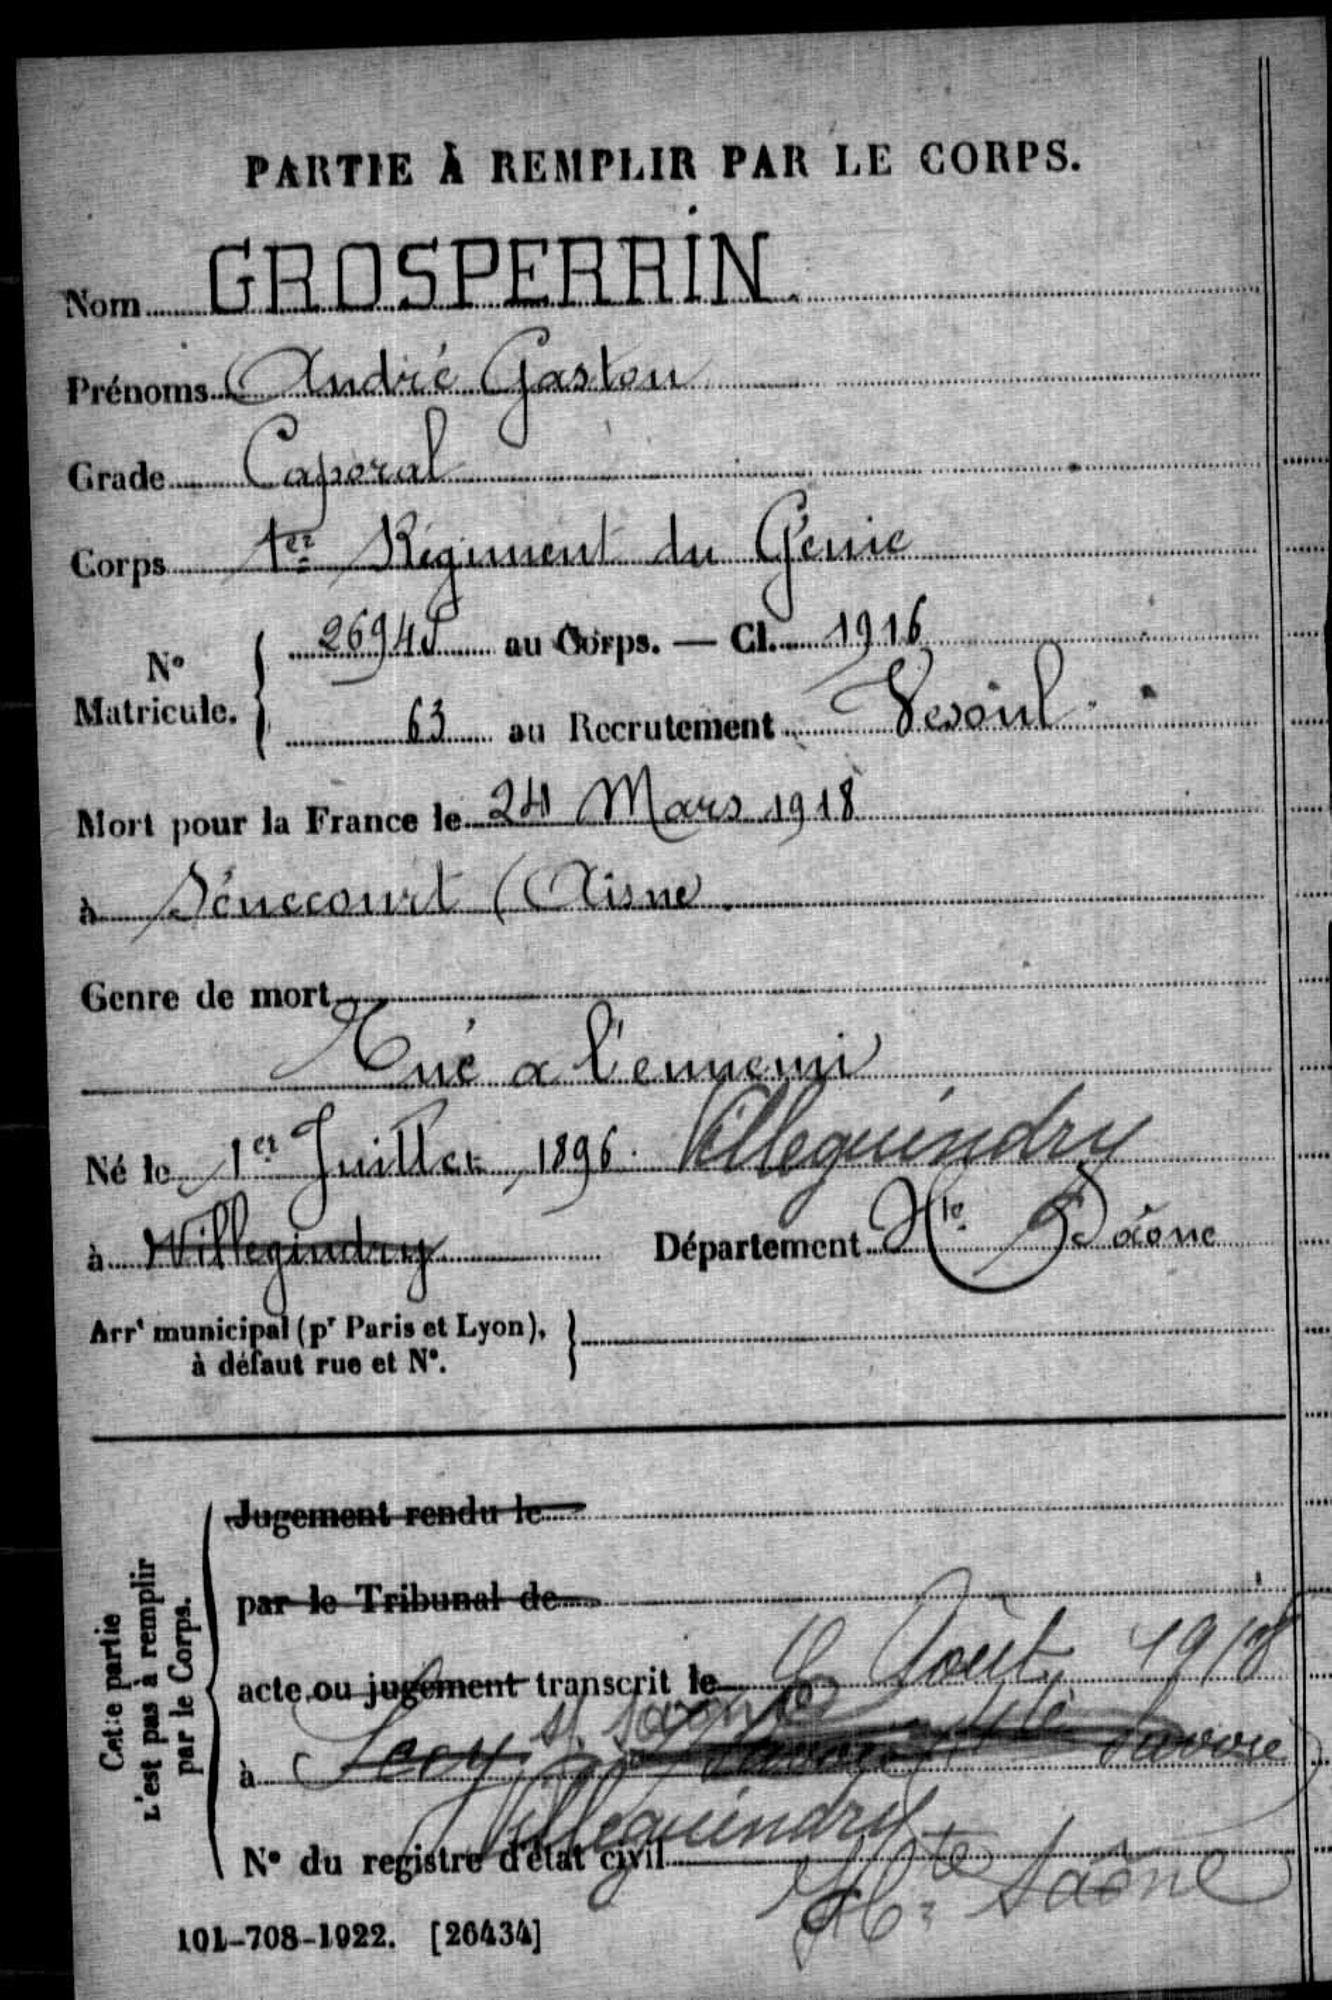 PARTIE À REMPLIR PAR LE CORPS.
Nom GROSPERRIN
Prénoms André Gaston
Grade Caporal
Corps 1er Régiment du Génie
N° Matricule. { 26945 au Corps. — Cl. 1916
63 au Recrutement Vesoul
Mort pour la France le 24 Mars 1918
à Sénecourt (Aisne
Genre de mort
Tué a l'ennemi
Né le 1er Juillet 1896. Villeguindry
à Villegindry Département Hte Saône
Arrt municipal (pr Paris et Lyon),
à défaut rue et N°.
Cette partie
n'est pas à remplir
par le Corps.
Jugement rendu le
par le Tribunal de
acte ou jugement transcrit le Août 1918
à Scey Savoie
Villeguindry
N° du registre d'état civil
Hte Saône
101-708-1922. [26434]